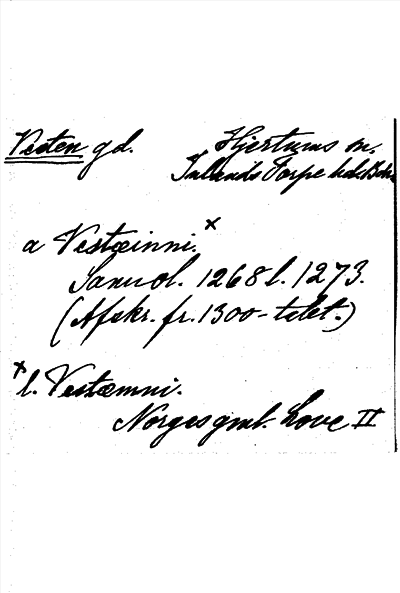 Vesten gd. Hjertums sn.
Inlands Torpe hd. Boh.
a Vestæinni. x
Sanuol. 1268 l. 1273.
(Afskr. fr. 1300-talet.)
x l. Vestæmni.
Norges gml. Love II